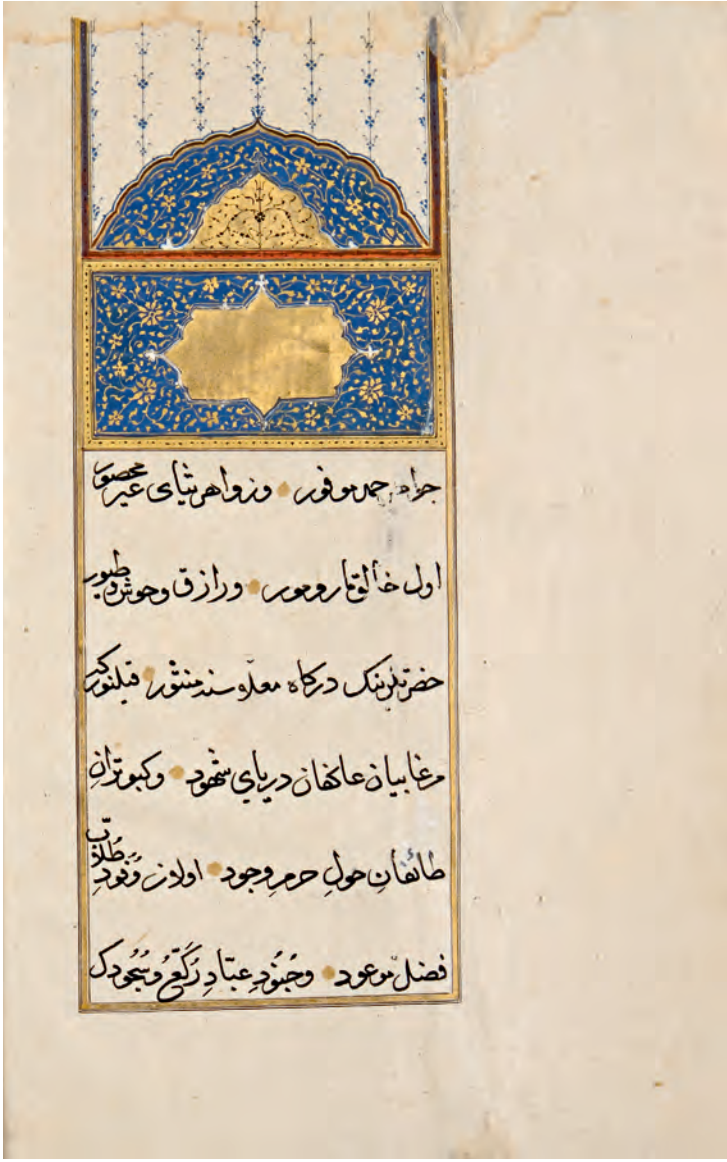 جواهر حمد موفور وزواهر ثنای غیر محصور
اول خالق مار ومور ورازق وحوش وطیور
حضرتلرینک درکاه معلاسنه منثور قیلنور که
مرغابیان عاکفان دریای شهود وکبوترانِ
طائفانِ حولِ حرمِ وجود اولان وُفودِ طُلّابِ
فضل موعود وجُنُودِ عبّادِ رُكَّعِ وسُجُودك